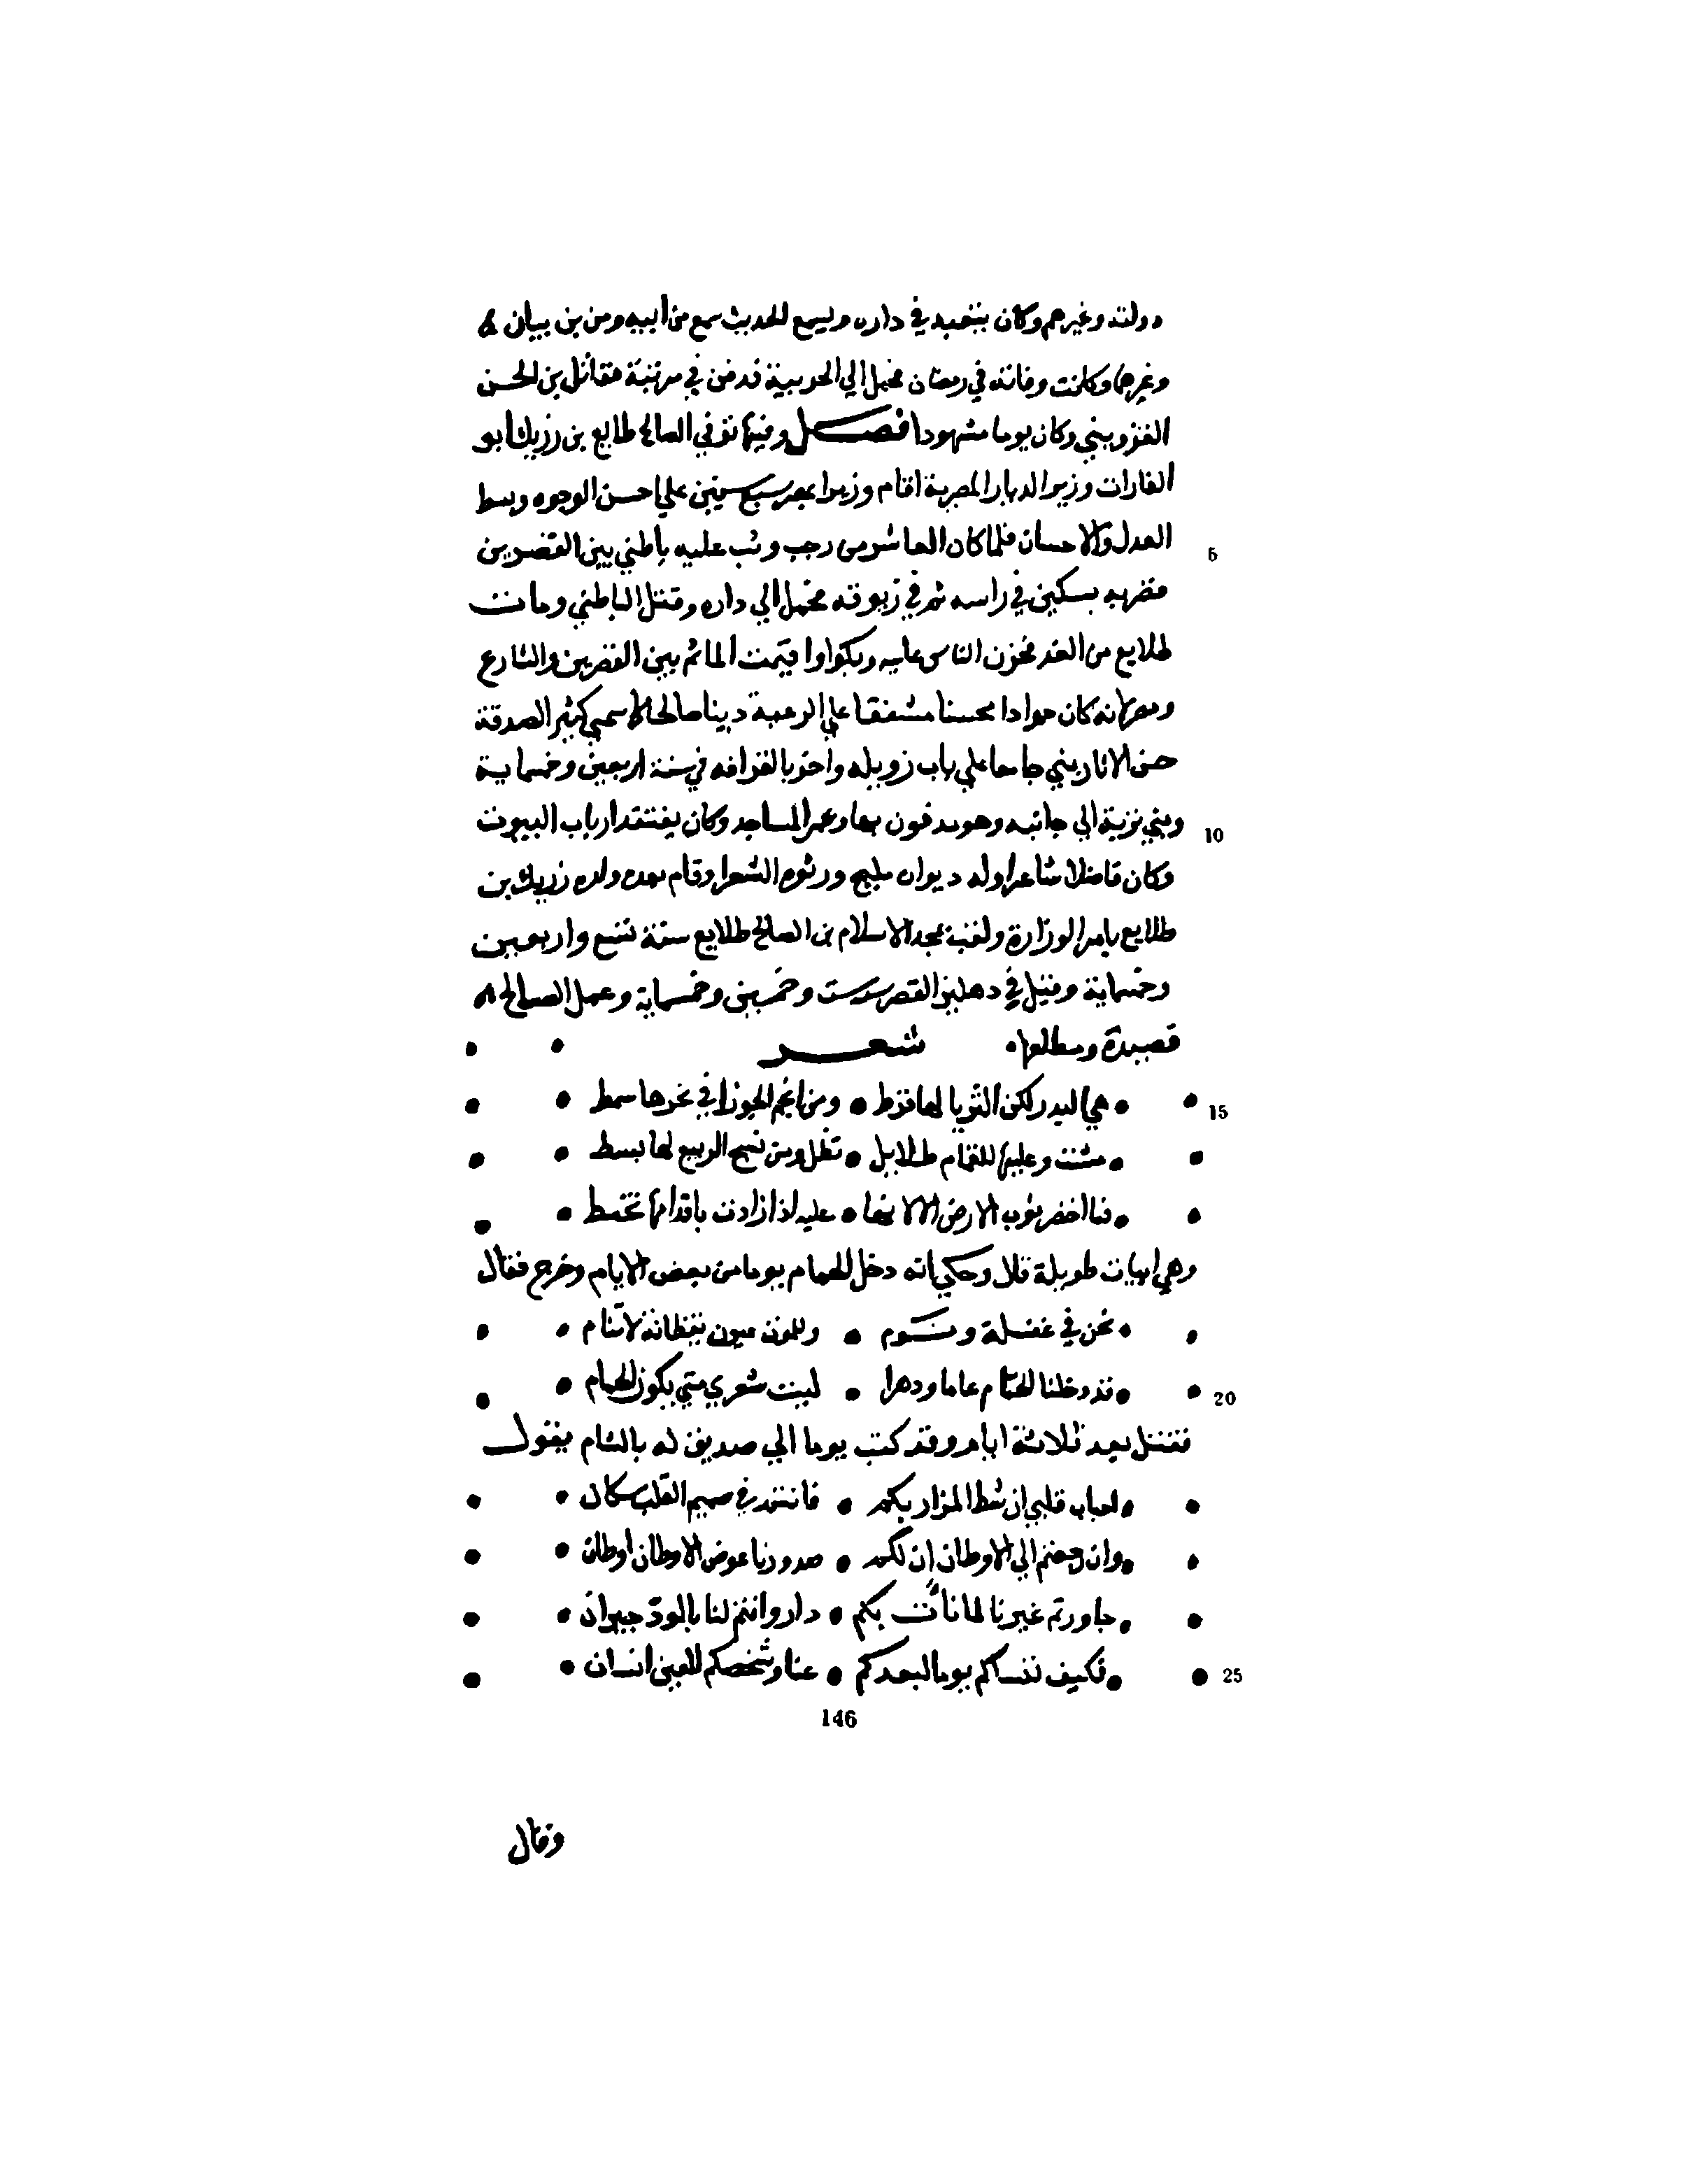 دولته وغيرهم وكان يتعبد في داره ويسمع الحديث سمع من ابيه ومن بن بيان
وغيرهما وكانت وفاته في رمضان فحمل الي الحربية فدفن في مرتبة مقاتل بن الحسن
القزويني وكان يوما مشهودا فصــل وفيها توفي الصالح طلايع بن رزيك ابو
الغارات وزير الديار المصرية اقام وزيرا بمصر سبع سنين علي احسن الوجوه وبسط
5 العدل والاحسان فلما كان العاشر من رجب وثب عليه باطني بين القصرين
فضربه بسكين في راسه ثم في ترقوته فحمل الي داره وقتل الباطني ومات
طلايع من الغد فحزن الناس عليه وبكوا واقيمت المأتم بين القصرين والشارع
ومصر لانه كان جوادا محسنا مشفقا علي الرعية دينا صالحا لا سمي كثير الصدقة
حسن الاثار بني جامعا علي باب زويله واخر بالقرافه في سنة اربعين وخمسماية
10 وبني تربة الي جانبه وهو مدفون بها وعمر المساجد وكان يفتقد ارباب البيوت
وكان فاضلا شاعرا وله ديوان مليح ورثوه الشعرا وقام بعده ولده رزيك بن
طلايع بامر الوزارة ولقب بمجد الاسلام بن الصالح طلايع سنة تسع واربعين
وخمسماية وقتل في دهليز القصر سنة ست وخمسين وخمسماية وعمل الصالح
قصيدة ومطلعها • شعــر • •
15 • • هي البدر لكن الثريا لها قرط • ومن انجم الجوزا في نحرها سمط • •
• مشت وعليها للغمام ظلايل • تظل ومن نسج الربيع لها بسط • •
• • فما اخضر ثوب الارض الا لانها • عليه اذا زادت باقدامها تخط • •
وهي ابيات طويلة قال وحكي انه دخل الحمام يوما من بعض الايام وخرج فقال
• • نحن في غفلة ونــوم • وللموت عيون يقظانة لا تنام • •
20 • • قد دخلنا الحمام عاما ودهرا • ليت شعري متي يكون الحمام • •
فقتل بعد ثلاثة ايام وقد كتب يوما الي صديق له بالشام يقول
• • احباب قلبي ان شط المزار بكم • فانتم في صميم القلب سكان • •
• • وان رجعتم الي الاوطان ان لكم • صدورنا عوض الاوطان اوطان • •
• • جاورتم غيرنا لما نأت بكم • دار وانتم لنا بالود جيران • •
25 • • فكيف ننساكم يوما لبعدكم • عنا وشخصكم للعين انسان • •
146
وقال